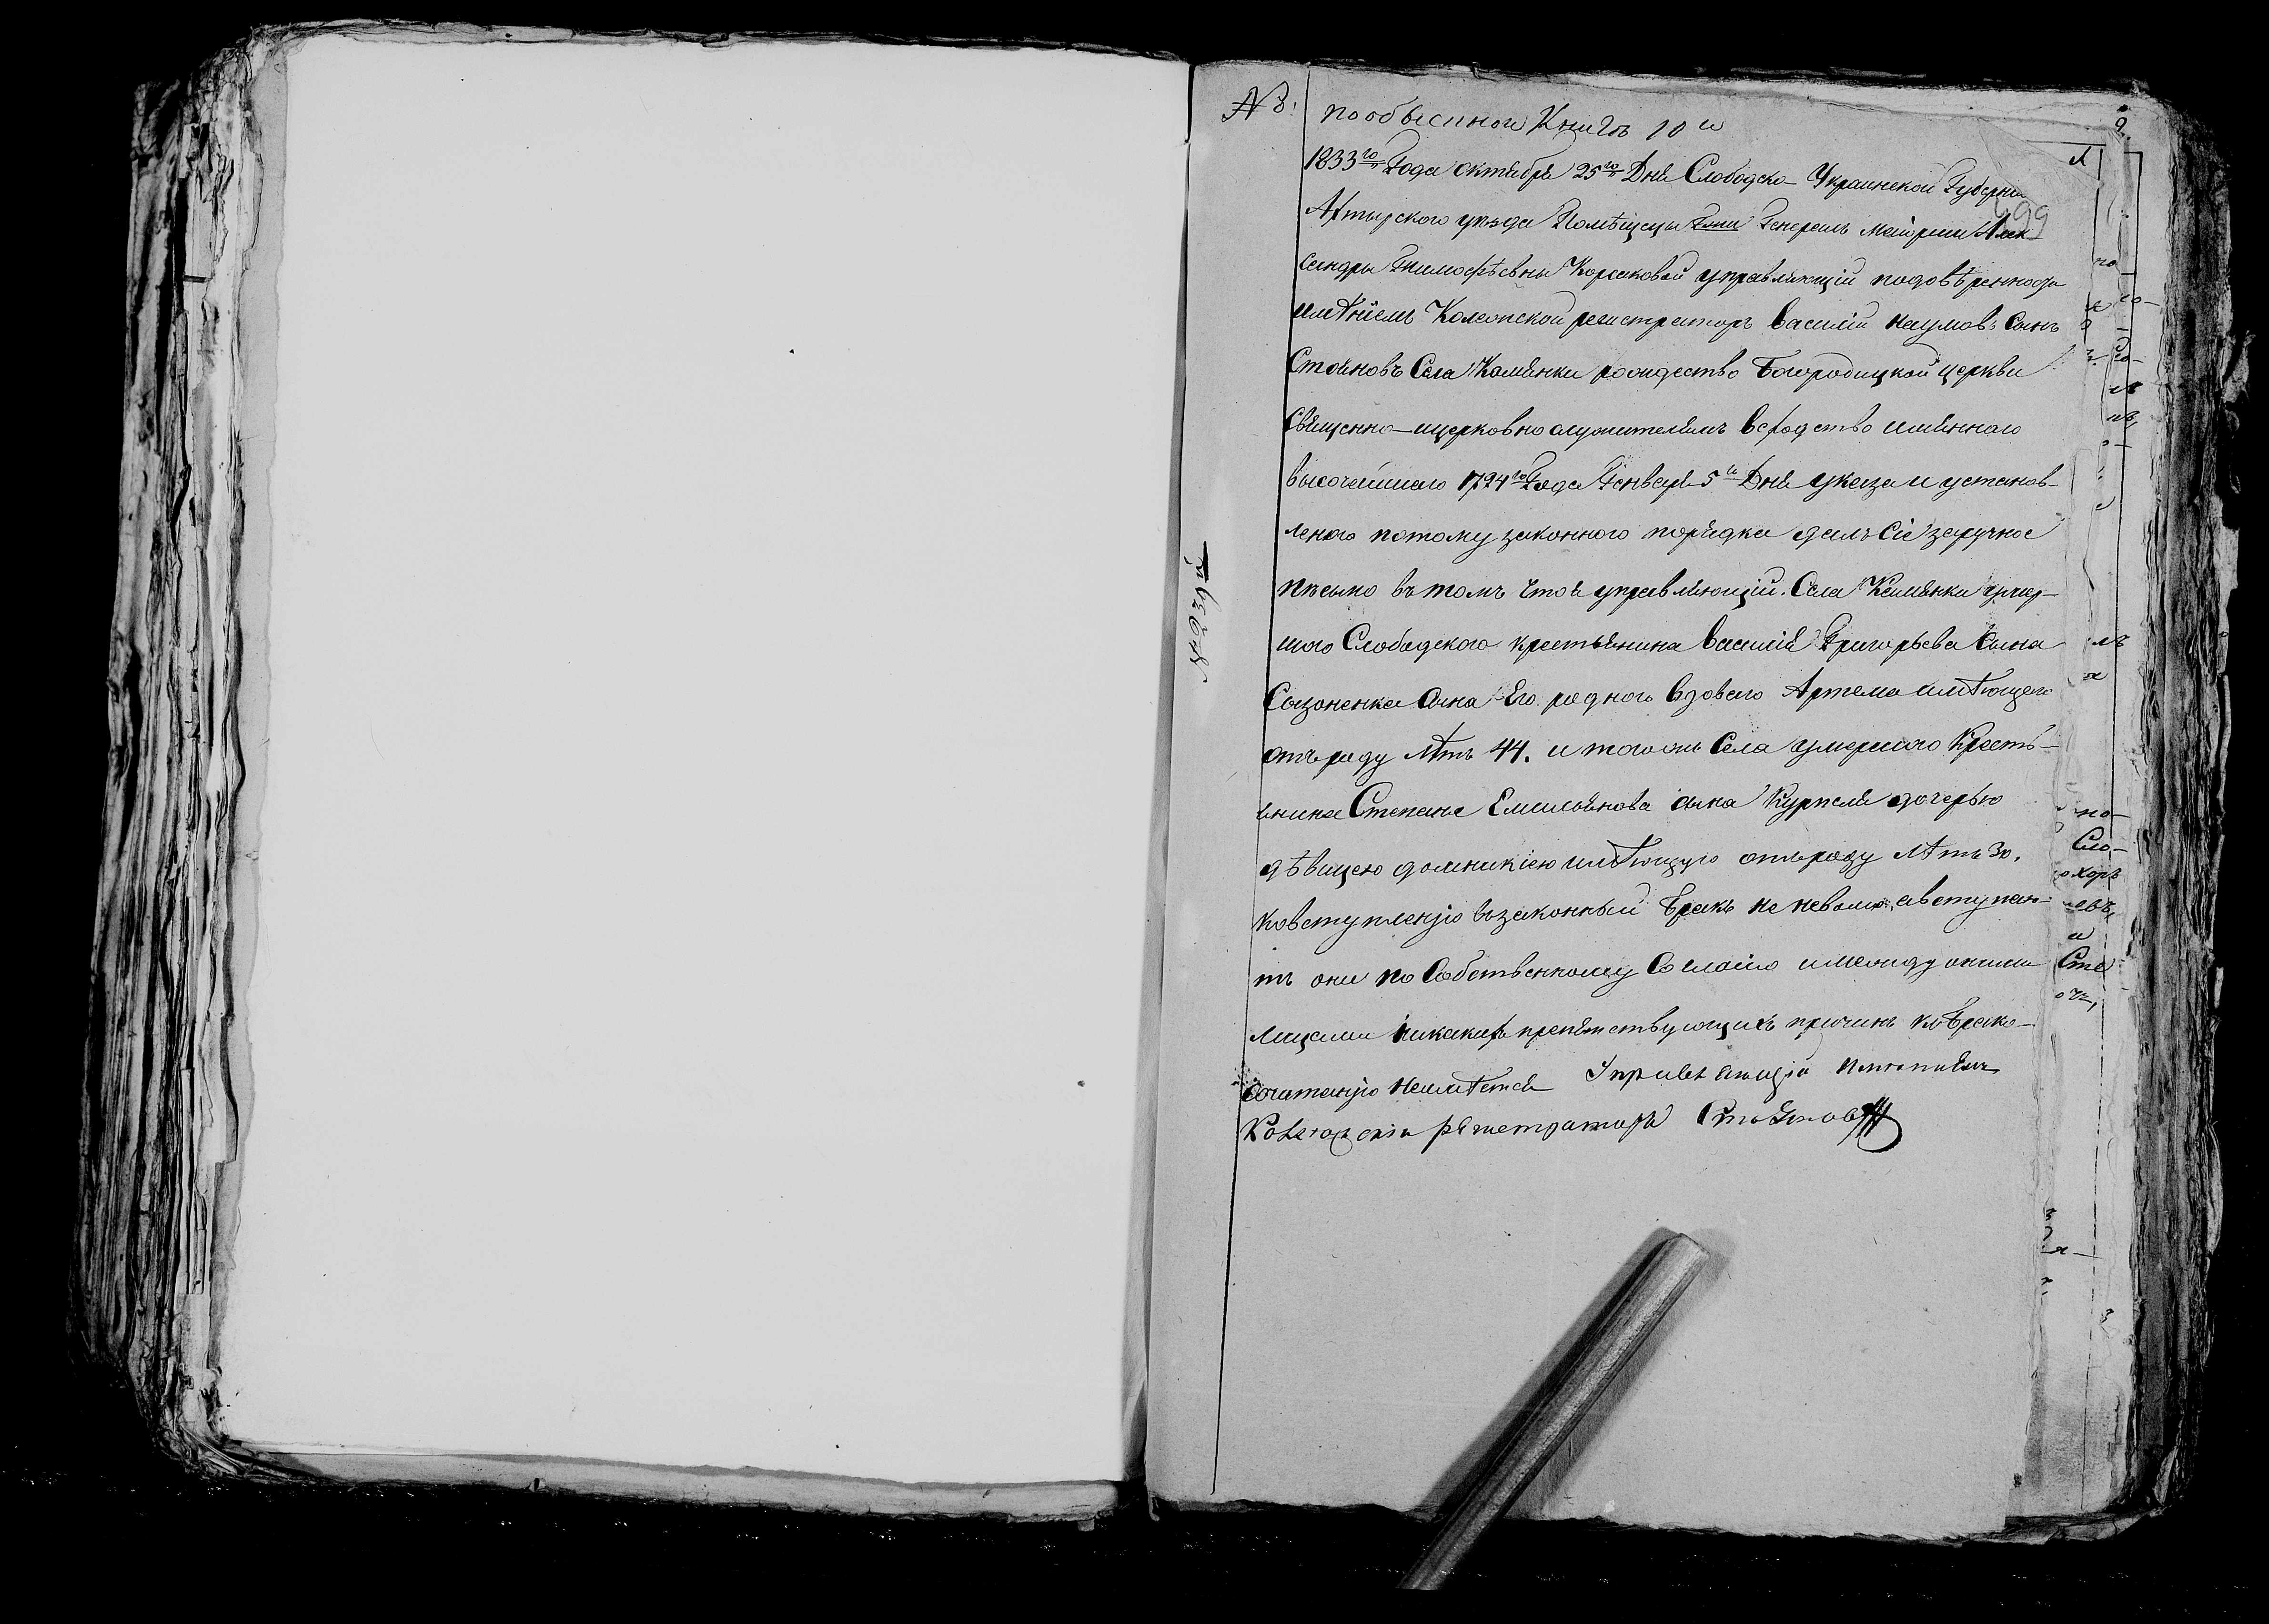 № 8.
по обыскной Книгѣ 10й
1833го Года октября 25го Дня Слободско-Украинской Губернии
Ахтырского уезда Помѣщицы Генералъ Маіорши Алек-
сандры Тимофѣевны Корсаковой управляющій подовѣренности
имѣніемъ Колежской регистраторъ Василій Наумовъ Сынъ
Стояновъ Села Камянки рождество Богородицкой церкви
Священно-ицерковнослужителямъ всходство имяннаго
высочайшаго 1774го Года Генваря 5го Дня указа и установ-
леного потому законного порядка далъ Сіе заручное
писмо въ томъ что я управляющій Села Камянки умер-
шого Слободского крестьянина Василія Григорьева Сына
Сазоненка Сына Его родного вдового Артема имѣющего
отъ роду лѣтъ 44. и того жъ Села умершого Кресть-
янина Степана Емильянова сына Курпеля дочерью
дѣвицею домникіею имѣющую отъ роду лѣтъ 30.
ко вступленію взаконный бракъ не неволю, а вступаю-
тъ они по Собственному Согласію имежду оними
Лицами никакихъ препятствующихъ причинъ къ брако-
сочитанію неимѣется Управляющій имѣніемъ
Колежскій регистраторъ Стояновъ